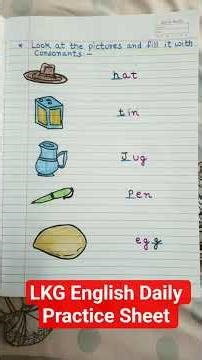 * Look at the pictures and fill it with
Consonants :-
hat
tin
Jug
Pen
egg
LKG English Daily
Practice Sheet